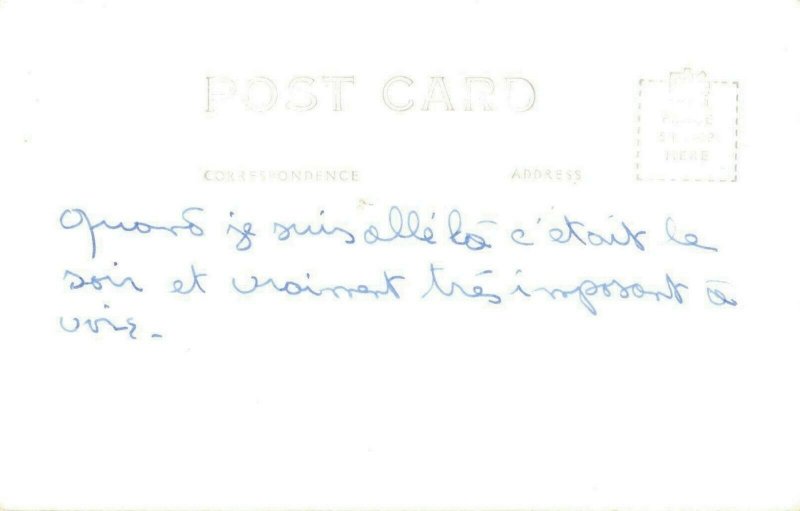 POST CARD
PLACE
STAMP
HERE
CORRESPONDENCE ADDRESS
Quand je suis allé là c'était le
soir et vraiment très imposant à
voir.